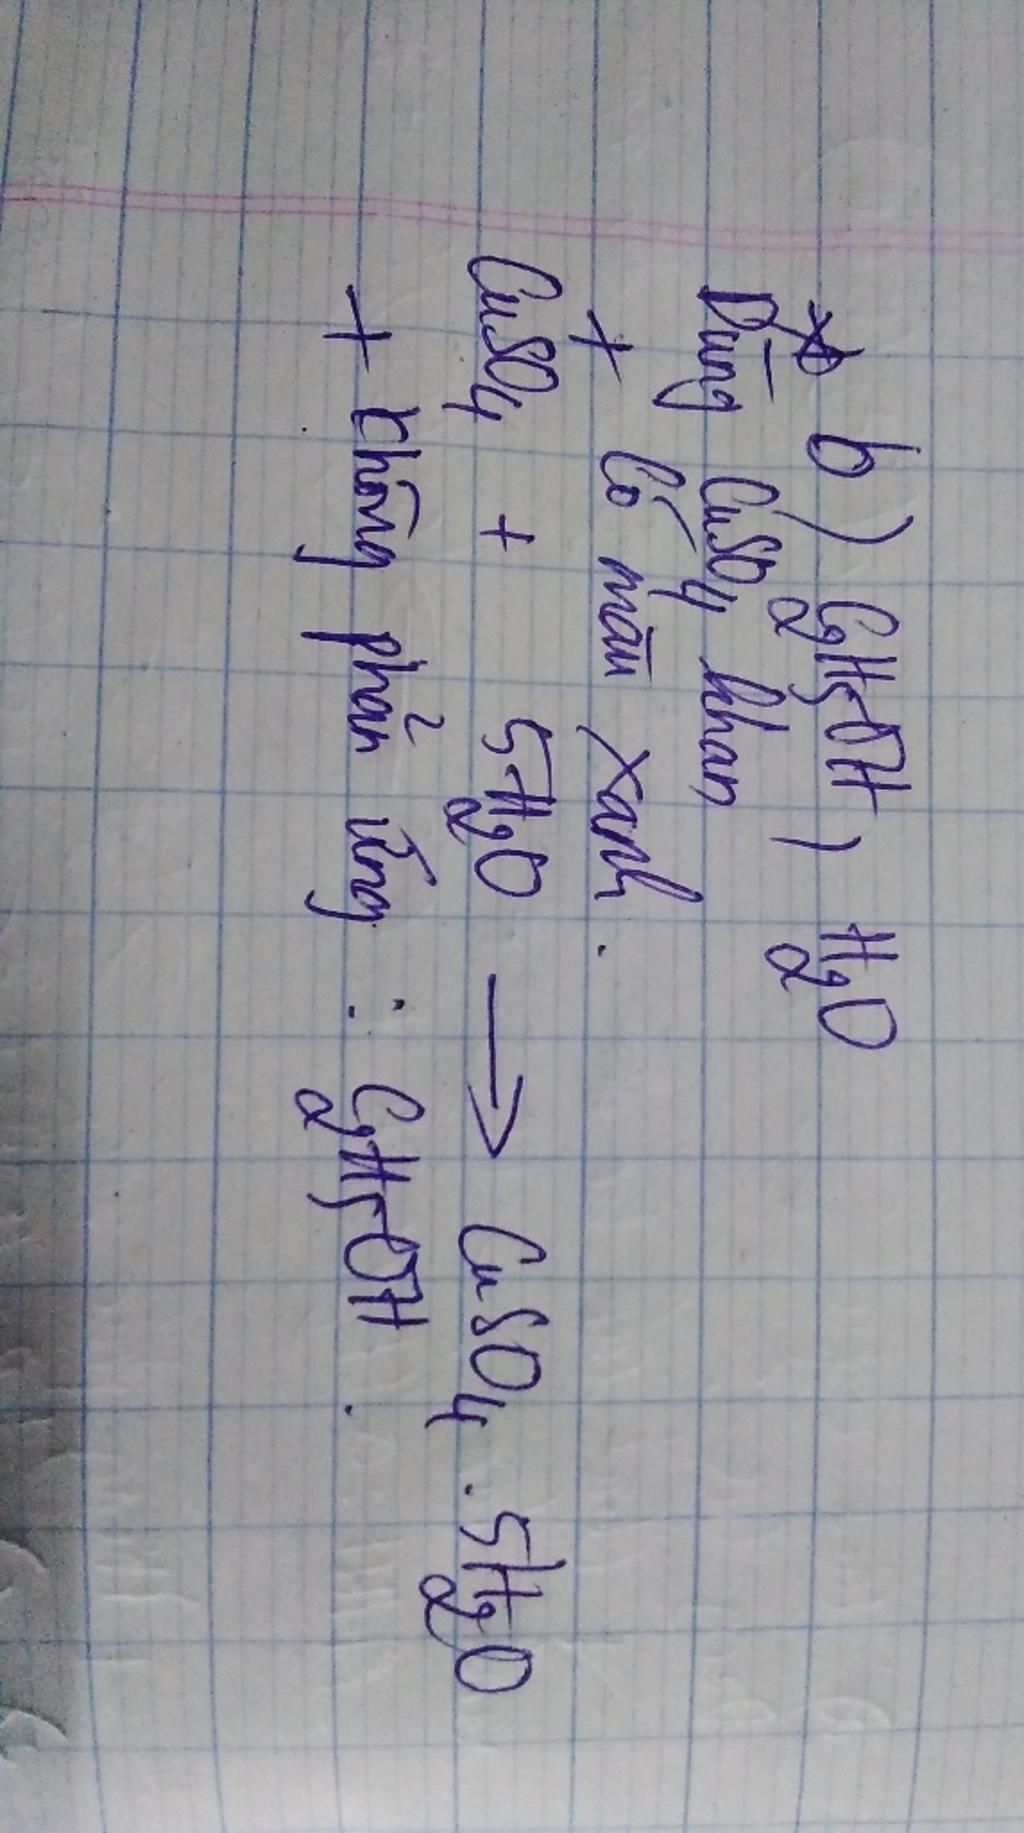 b) C2H5OH, H2O
Dùng CuSO4 khan
+ Có màu xanh.
CuSO4 + 5H2O → CuSO4.5H2O
+ không phản ứng : C2H5OH.